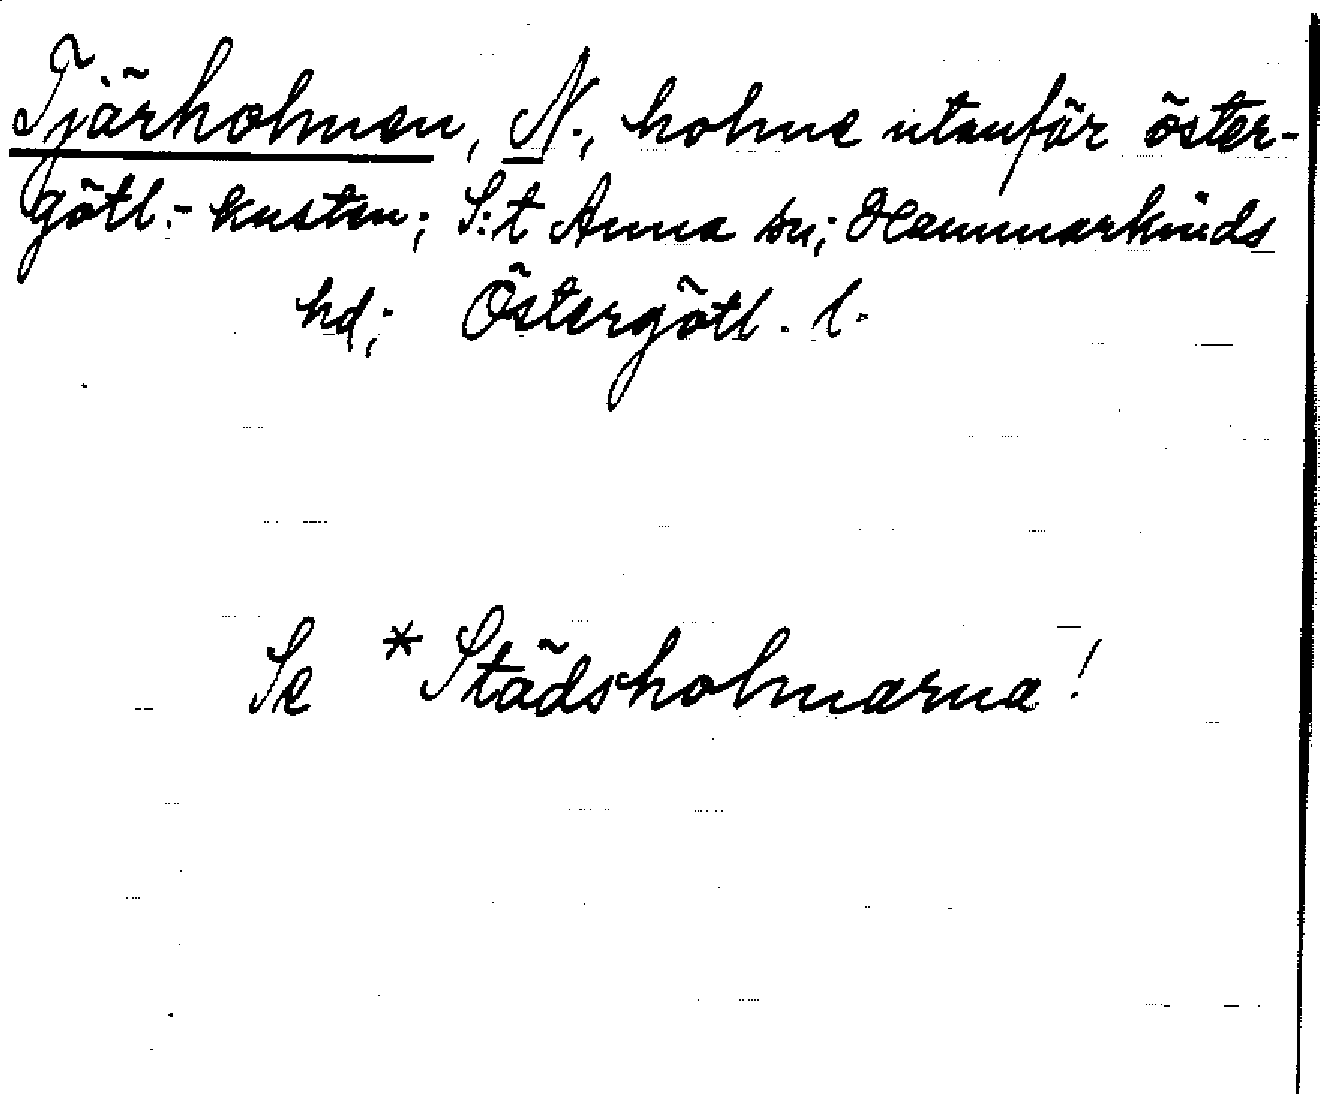 Tjärholmen, N., holme utanför öster-
götl.-kusten; S:t Anna sn; Hammarkinds
hd; Östergötl. l.
Se *Städsholmarna!